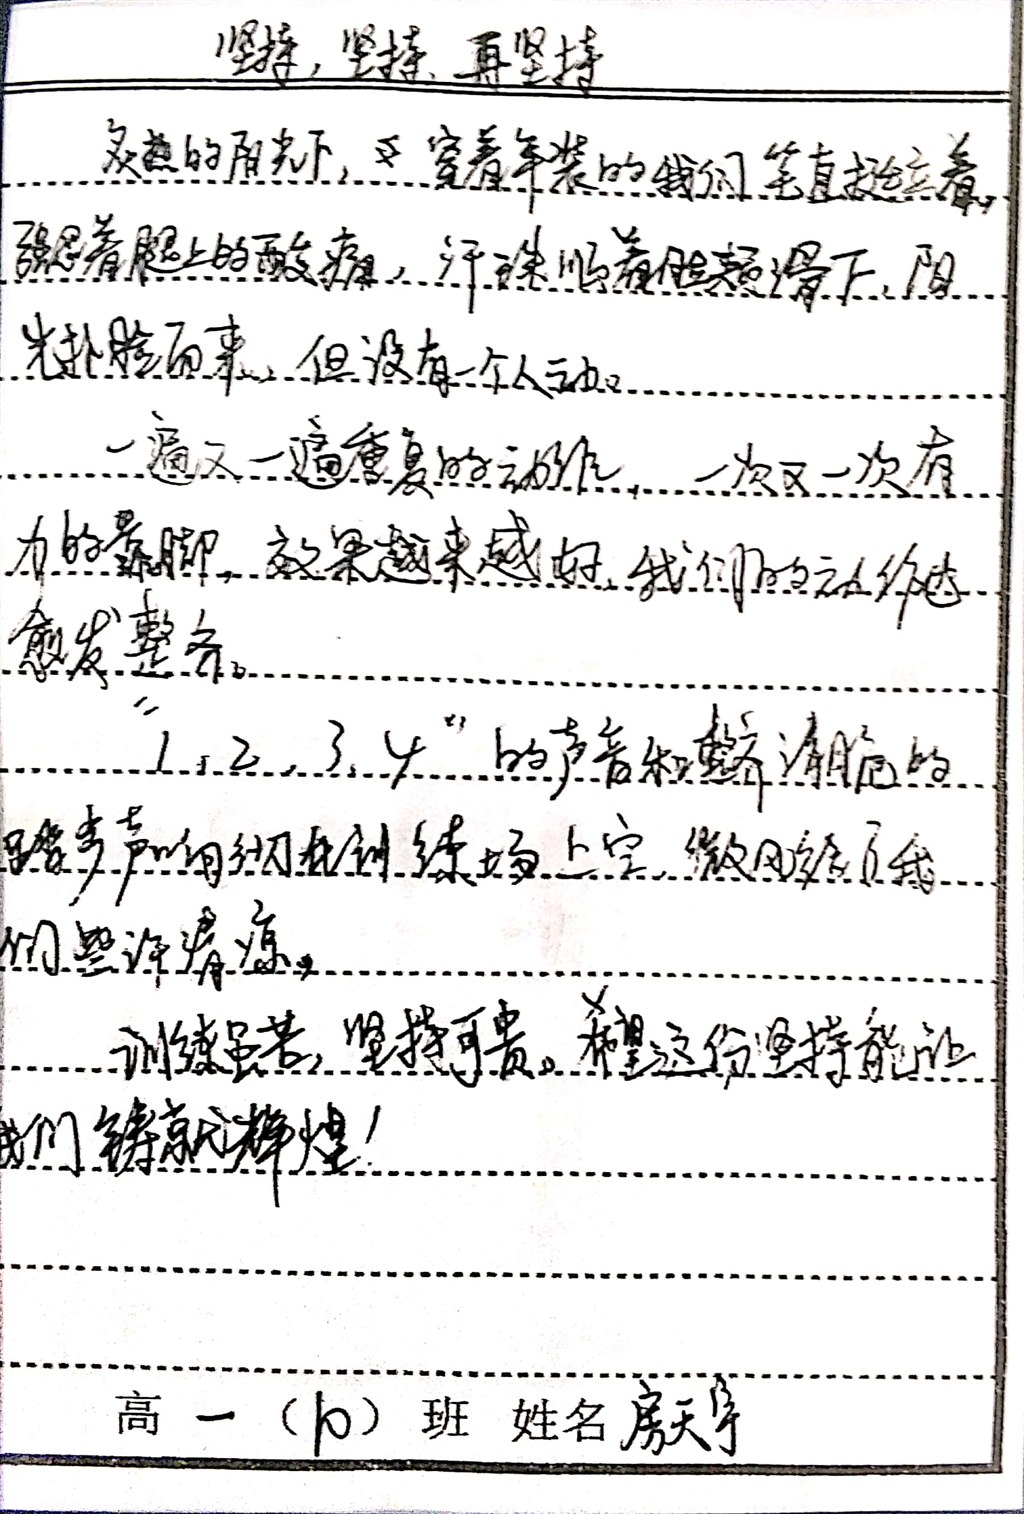 坚持,坚持、再坚持
炙热的阳光下,穿着军装的我们笔直挺立着,
强忍着腿上的酸痛,汗珠顺着脸颊滑下,阳
光扑脸而来,但没有一个人动。
一遍又一遍重复的动作,一次又一次有
力的靠脚,效果越来越好,我们的动作也
愈发整齐。
"1、2、3、4"的声音和整齐清脆的
踏步声响彻在训练场上空,微风给了我
们些许清凉。
训练虽苦,坚持可贵。希望这份坚持能让
我们铸就辉煌!
高一(10)班 姓名房天宇